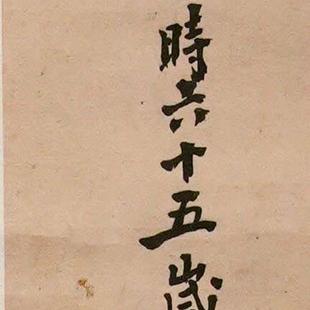 時六十五歳